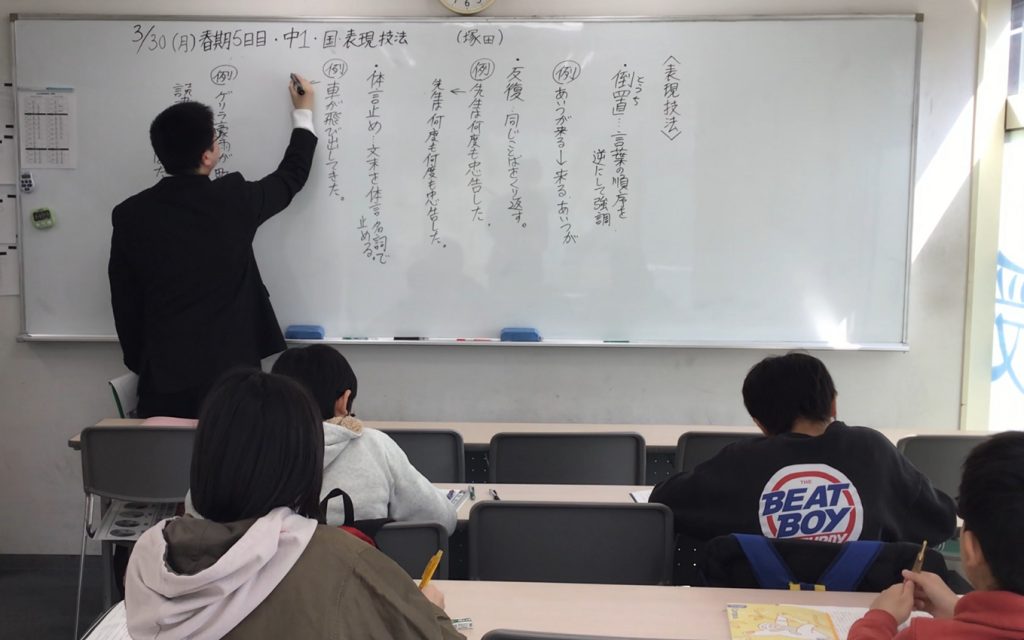 3/30(月)春期5日目・中1・国・表現技法 (塚田)
〈表現技法〉
とうち
・倒置…言葉の順序を
逆にして強調
例 あいつが来る→来る、あいつが
・反復…同じことばをくり返す。
例 先生は何度も忠告した。
↓
先生は何度も何度も忠告した。
・体言止め…文末を体言(名詞)で
止める。
例 車が飛び出してきた。
例 ゲリラ豪雨が
THE
BEAT
BOY